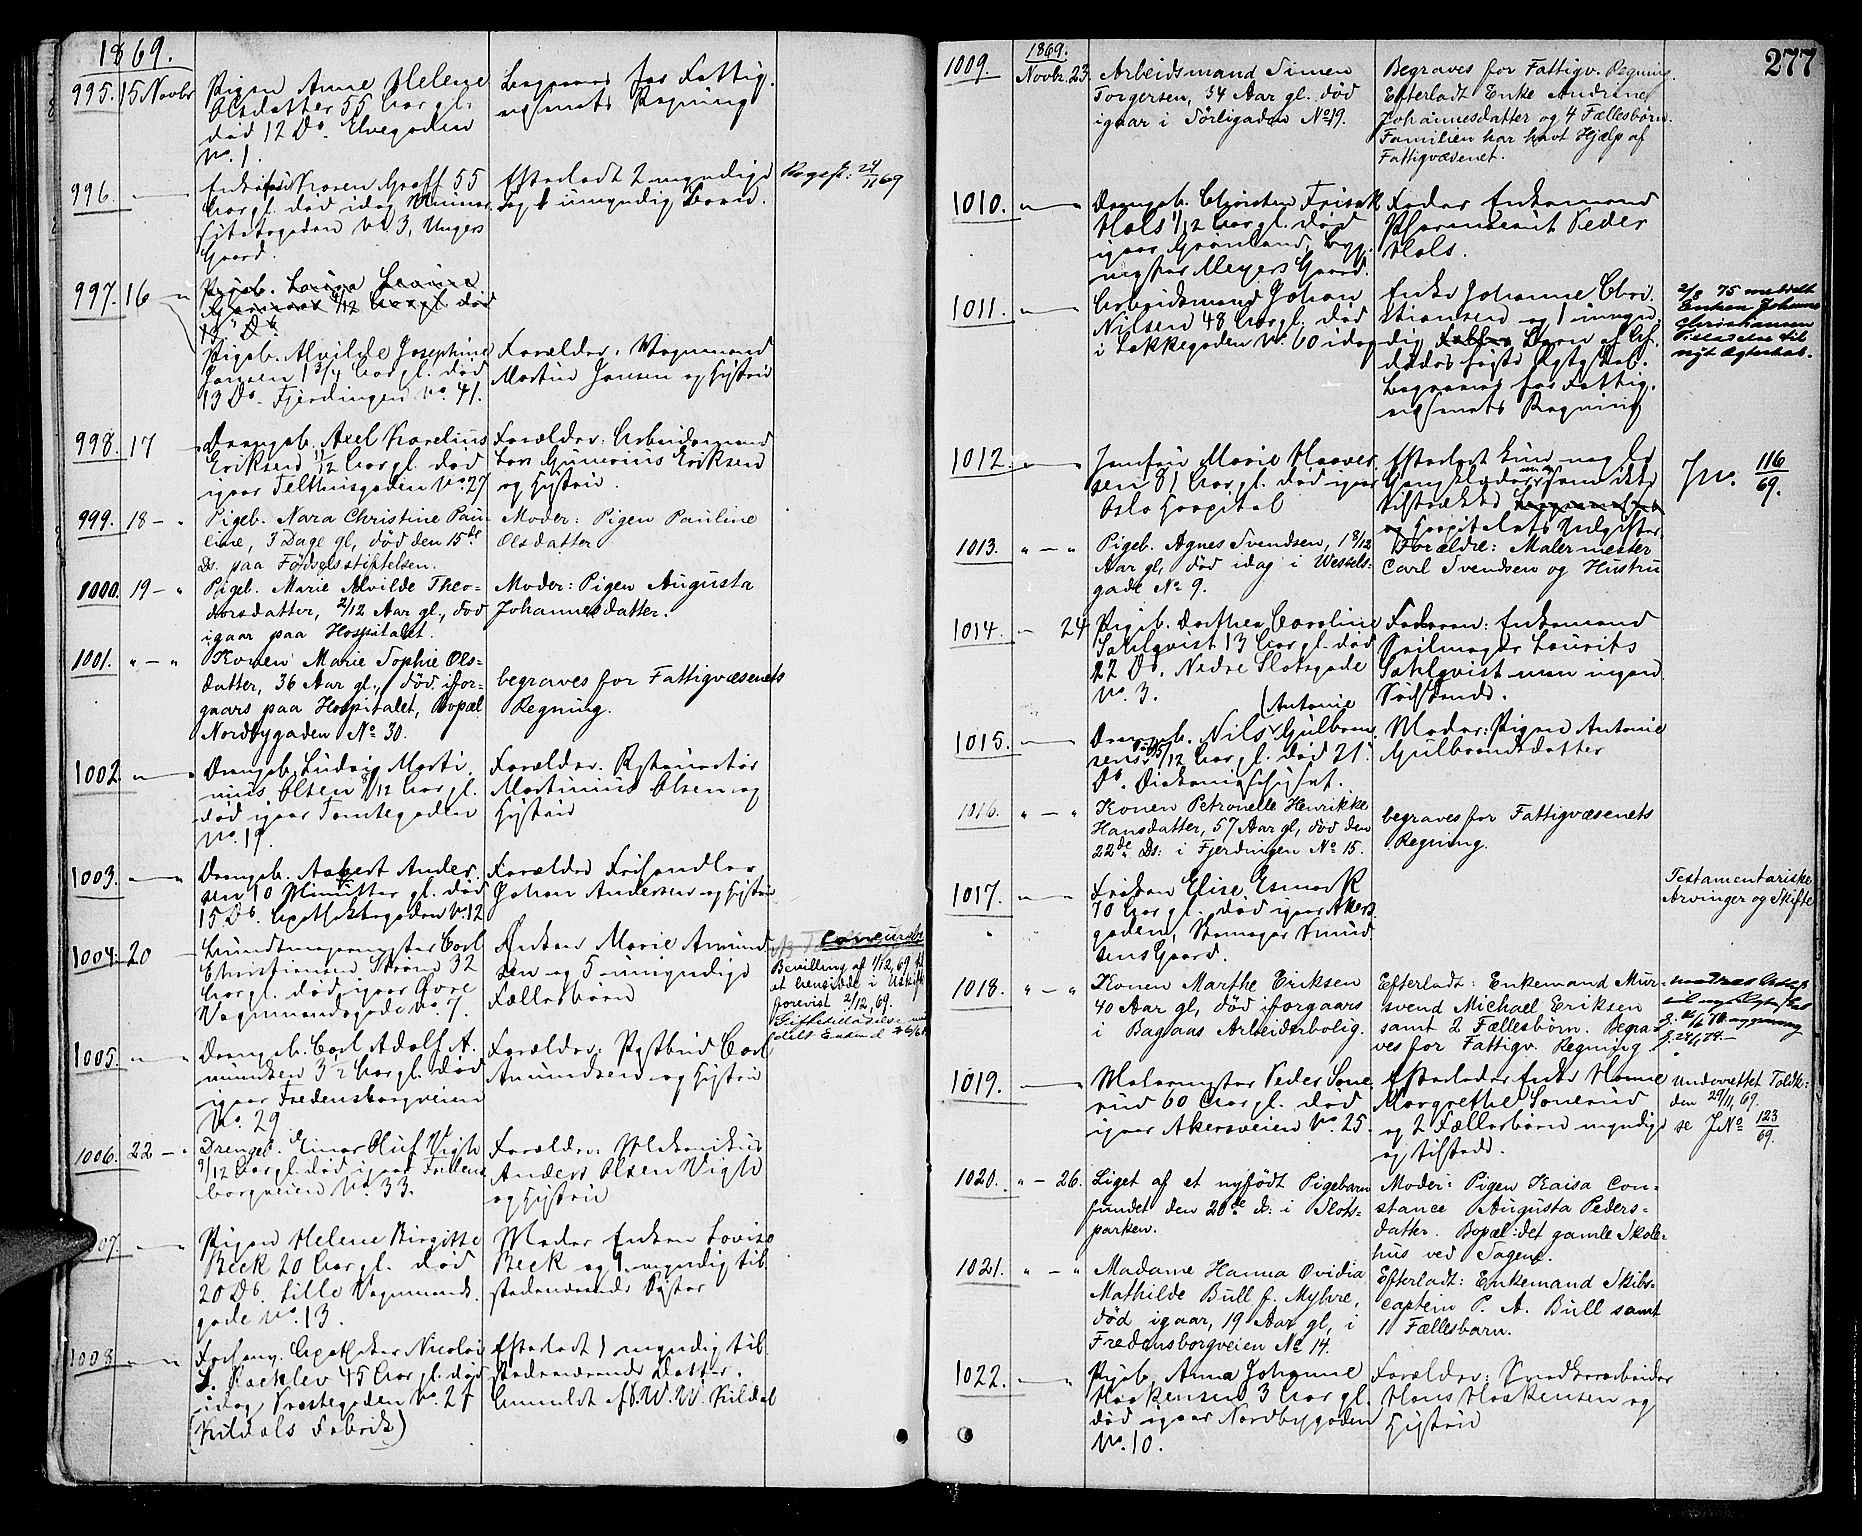 1869.
995. 15 Novbr Pigen Anne Helene
Olsdatter 55 Aar gl.
død 12 Ds. Elvegaden
No. 1.
Begraves for Fattig-
væsenets Regning
996. Enkefru Karen Graff 55
Aar gl. død idag
gaden No 3, Ungers
Gaard.
Efterladt 2 myndige
og 1 umyndig Barn.
Regist: 24/11 69
997. 16 Pigeb. Lovise
1/12 Aar gl. død
15 Ds.
Pigeb. Alvilde Josephine
Jansen 1 3/4 Aar gl. død
13 Ds. Fjerdingen No. 41.
Forældre: Vognmand
Martin Jansen og Hustru
998. 17 Drengeb. Axel Karelius
Eriksen 11/12 Aar gl. død
igaar Telthusgaden No. 27
Forældre: Arbeidsmand
Lars Gunerius Eriksen
og Hustru.
999. 18 - " Pigeb. Nara Christine Pau-
line, 3 Dage gl, død den 15de
Ds. paa Fødselsstiftelsen.
Moder: Pigen Pauline
Olsdatter
1000. 19 - " Pigeb. Marie Alvilde Theo-
dorsdatter, 2/12 Aar gl., død
igaar paa Hospitalet.
Moder: Pigen Augusta
Johannesdatter.
1001. " - " Konen Marie Sophie Ols-
datter, 36 Aar gl., død ifor-
gaars paa Hospitalet, Bopæl
Nordbygaden No 30.
begraves for Fattigvæsenets
Regning.
1002. Drengeb. Ludvig Marti-
nius Olsen 8/12 Aar gl.
død igaar Tomtegaden
No. 19.
Forældre: Restauratør
Martinius Olsen og
Hustru
1003. Drengeb. Aabert Ander-
sen 10 Minutter gl. død
15 Ds. Apothekergaden No. 12
Forældre Frihandler
Johan Andersen og Hustru
1004. 20 Bundtmagermester Carl
Christiansen Strøm 32
Aar gl. død igaar Øvre
Vognmandsgade No. 7.
Enken Marie Amund-
sen og 5 umyndige
Fællesbørn
Bevilling af 1/12, 69 til
at hensidde i Uskift
forevist 2/12, 69.
1005. Drengeb. Carl Adolf A-
mundsen 3 1/2 Aar gl. død
igaar Fredensborgveien
No. 29
Forældre: Postbud Carl
Amundsen og Hustru
1006. 22 - Drengeb. Einar Oluf Vigh
9/12 Aar gl. død igaar Fredens-
borgveien No. 33.
Forældre: Mekanikus
Anders Olsen Vigh
og Hustru
1007 Pigen Helene Birgitte
Beck 20 Aar gl. død
20 Ds. Lille Vognmands-
gade No. 13.
Moder Enken Lovise
Beck og 1 myndig til-
stedeværende Søster
1008 Forhenv. Apotheker Nicolai
S. Racklev 45 Aar gl. død
idag Præstegaden No. 27
(Kildals Fabrik)
Efterladt 1 myndig til-
stedeværende Datter.
Anmeldt af P. W. W. Kildal
277
1009. 1869. Novbr. 23. Arbeidsmand Simen
Torgersen, 34 Aar gl. død
igaar i Sørligaden No 19.
Begraves for Fattigv. Regning.
Efterladt Enke Andrine
Johannesdatter og 4 Fællesbørn.
Familien har havt Hjælp af
Fattigvæsenet.
1010. Drengeb. Christen Frisak
Hals 1/12 Aar gl. død
igaar Grønland, Byg-
mester Meyers Gaard.
Fader Enkemand
Pharmaceut Peder
Hals.
1011. Arbeidsmand Johan
Nilsen 48 Aar gl. død
i Lakkegaden No. 60 idag
Enke Johanne Chri-
stiansen og 1 umyn-
dig Barn af Af-
dødes første Ægteskab.
Begraves for Fattig-
væsenets Regning
2/8 75 meddelt
Enken Johanne
Christiansen
Tilladelse til
nyt Ægteskab.
1012. Jomfru Marie Haaver-
sen 81 Aar gl. død igaar
Oslo Hospital
Efterladt kun nogle
Gangklæder som ikke
tilstrække
og Hospitalets Udgifter.
Jno. 116/69.
1013. " - " Pigeb. Agnes Svendsen, 1 8/12
Aar gl, død idag i Wessels-
gade No 9.
Forældre: Malermester
Carl Svendsen og Hustru
1014. - 24 Pigeb. Dorthea Caroline
Sahlqvist 13 Aar gl. død
22 Ds. Nedre Slotsgade
No. 3.
Faderen: Enkemand
Seilmager Laurits
Sahlqvist men ingen
Ødsstande.
1015. Drengeb. Nils (Antonie Gulbrand-
sens 5/12 Aar gl. død 21.
Ds. Diakonissehuset.
Moder: Pigen Antonie
Gulbrandsdatter
1016. " - " Konen Petronelle Henrikke
Hansdatter, 57 Aar gl, død den
22de Ds: i Fjerdingen No 15.
begraves for Fattigvæsenets
Regning.
1017. Frøken Elise Esmark
70 Aar gl. død igaar Akers-
gaden, Skomager Knud-
sens Gaard.
Testamentariske
Arvinger og Skifte
1018. " - " Konen Marthe Eriksen
40 Aar gl, død iforgaars
i Bagaas Arbeiderbolig.
Efterladt: Enkemand Mur-
svend Michael Eriksen
samt 2 Fællesbørn. Begra-
ves for Fattigv. Regning.
1019. Malermester Peder Sone-
rud 60 Aar gl. død
igaar Akersveien No. 25.
Efterlader Enke Hanne
Margrethe Sonerud
og 2 Fællesbørn myndige
og tilstede.
Underrettet Toldk:
den 29/11, 69.
se JNo 123/69.
1020. " - 26. Liget af et nyfødt Pigebarn
fundet den 20de ds: i Slots-
parken.
Moder: Pigen Kaisa Con-
stance Augusta Peders-
datter. Bopæl: det gamle Skole-
hus ved Sagene.
1021. " - " Madame Hanna Ovidia
Mathilde Bull f. Myhre,
død igaar, 19 Aar gl, i
Fredensborgveien No 14.
Efterladt: Enkemand Skibs-
captein P. A. Bull samt
1 Fællesbarn.
1022. Pigeb. Anna Johanne
Haakensen 3 Aar gl.
død igaar Nordbygaden
No. 10.
Forældre: Snedkerarbeider
Hans Haakensen og
Hustru